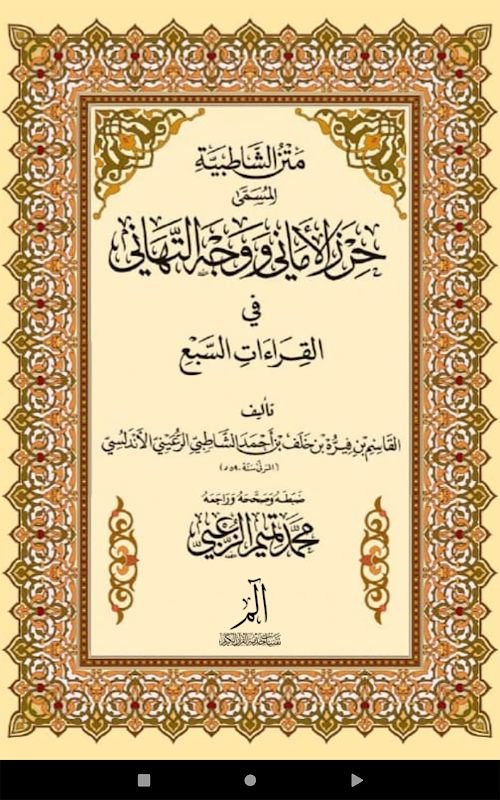 مَتْنُ الشَّاطِبِيَّةِ
المُسَمَّى
حِرْزُ الأَمَانِي وَوَجْهُ التَّهَانِي
فِي
القِرَاءَاتِ السَّبْعِ
تأليف
القَاسِمِ بْنِ فِيرُّهْ بْنِ خَلَفِ بْنِ أَحْمَدَ الشَّاطِبِيِّ الرُّعَيْنِيِّ الأَنْدَلُسِيِّ
(المتوفى سنة ٥٩٠ هـ)
ضَبَطَهُ وَصَحَّحَهُ وَرَاجَعَهُ
مُحَمَّد تَمِيم الزُّعْبِي
الٓمٓ